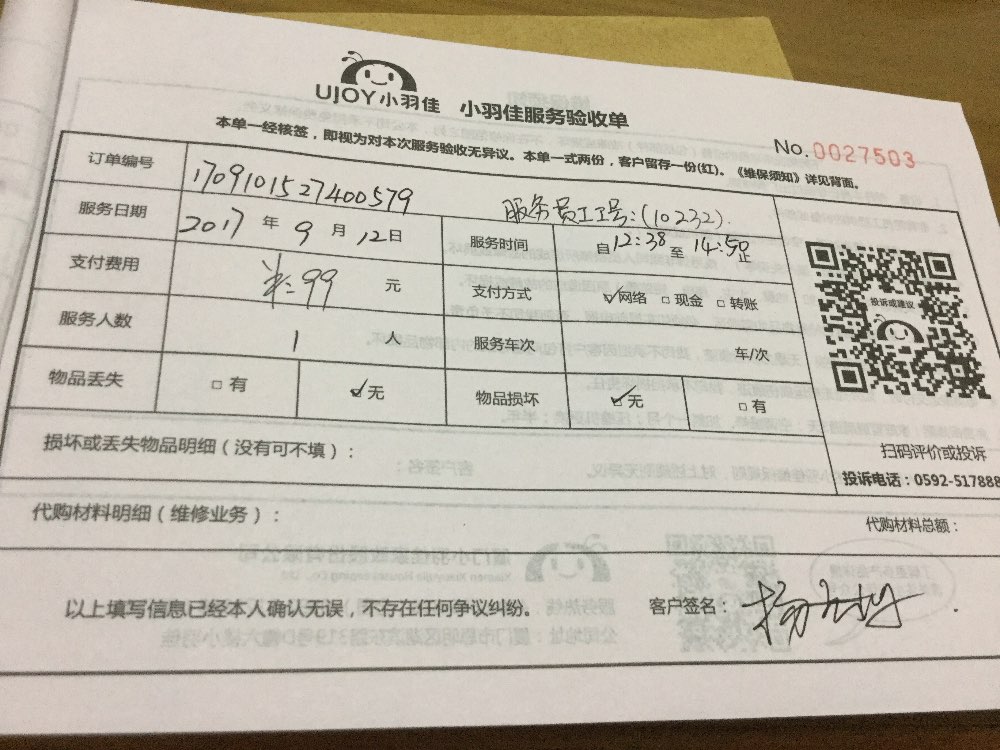 UJOY小羽佳 小羽佳服务验收单
No.0027503
本单一经核签，即视为对本次服务验收无异议。本单一式两份，客户留存一份(红)。《维保须知》详见背面。
订单编号 1709101527400579 服务员工工号:(10232).
服务日期 2017 年 9 月 12日 服务时间 自12:38至 14:50止
支付费用 99 元 支付方式 网络 现金 转账
服务人数 1 人 服务车次 车/次
物品丢失 有 无 物品损坏 无 有
投诉或建议
扫码评价或投诉
投诉电话：0592-517888
损坏或丢失物品明细（没有可不填）：
代购材料明细（维修业务）： 代购材料总额：
以上填写信息已经本人确认无误，不存在任何争议纠纷。 客户签名：